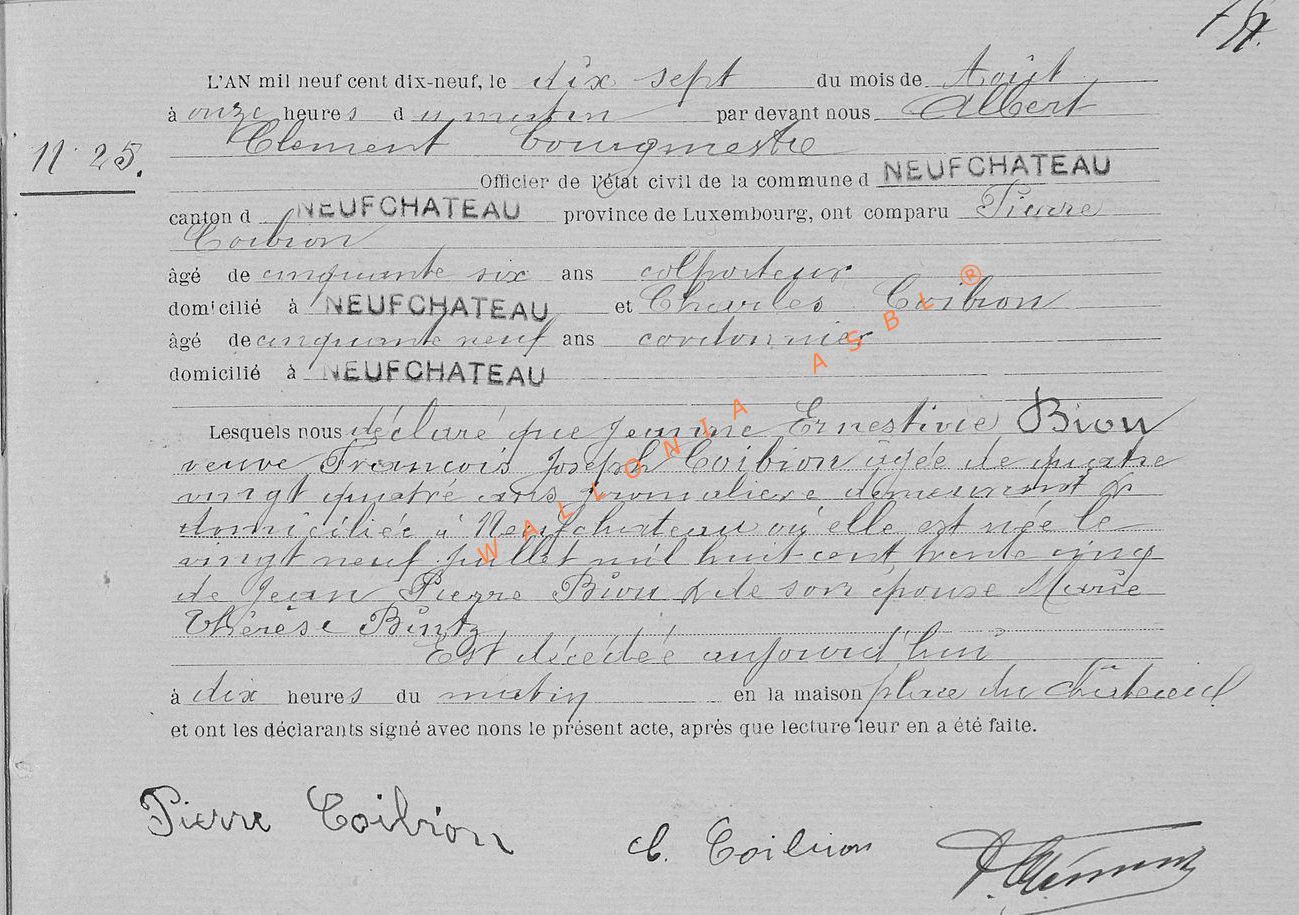 L'AN mil neuf cent dix-neuf, le dix sept du mois de Août
à onze heures du matin par devant nous Albert
Clement bourgmestre
N° 25.
Officier de l'état civil de la commune d NEUFCHATEAU
canton d NEUFCHATEAU province de Luxembourg, ont comparu Pierre
Coibion
âgé de cinquante six ans colporteur
domicilié à NEUFCHATEAU et Charles Coibion
âgé de cinquante neuf ans cordonnier
domicilié à NEUFCHATEAU
Lesquels nous déclaré que Jeanne Ernestine Biou
veuve François Joseph Coibion âgée de quatre
vingt quatre ans journalière demeurant &
domiciliée à Neufchateau où elle est née le
vingt neuf juillet mil huit cent trente cinq
de Jean Pierre Biou & de son épouse Marie
Thérèse Bintz
Est décédée aujourd'hui
à dix heures du matin en la maison place du château
et ont les déclarants signé avec nons le présent acte, après que lecture leur en a été faite.
Pierre Coibion
ch. Coibion
Clément
WALLONIA ASBL ®